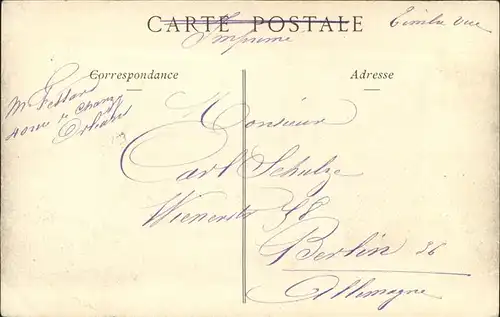 CARTE POSTALE
Imprimé
Timbre vue
Correspondance
Adresse
M Fessard
Orléans
Monsieur
Carl Schulze
Wienerstr 48
Berlin 36
Allemagne